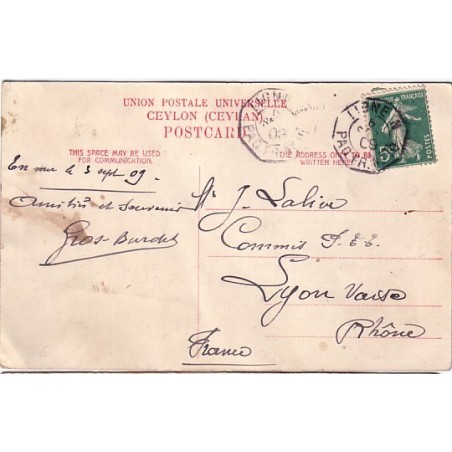 UNION POSTALE UNIVERSELLE
CEYLON (CEYLAN)
POSTCARD
THIS SPACE MAY BE USED
FOR COMMUNICATION.
THE ADDRESS ONLY TO BE
WRITTEN HERE
LIGNE N
PAQ. FR.
09
5
POSTES
En mer le 3 sept 09
Amitiés et souvenir
Gros-Burdet
Mr J. Lalive
Commis P.E.E.
Lyon Vaise
Rhône
France